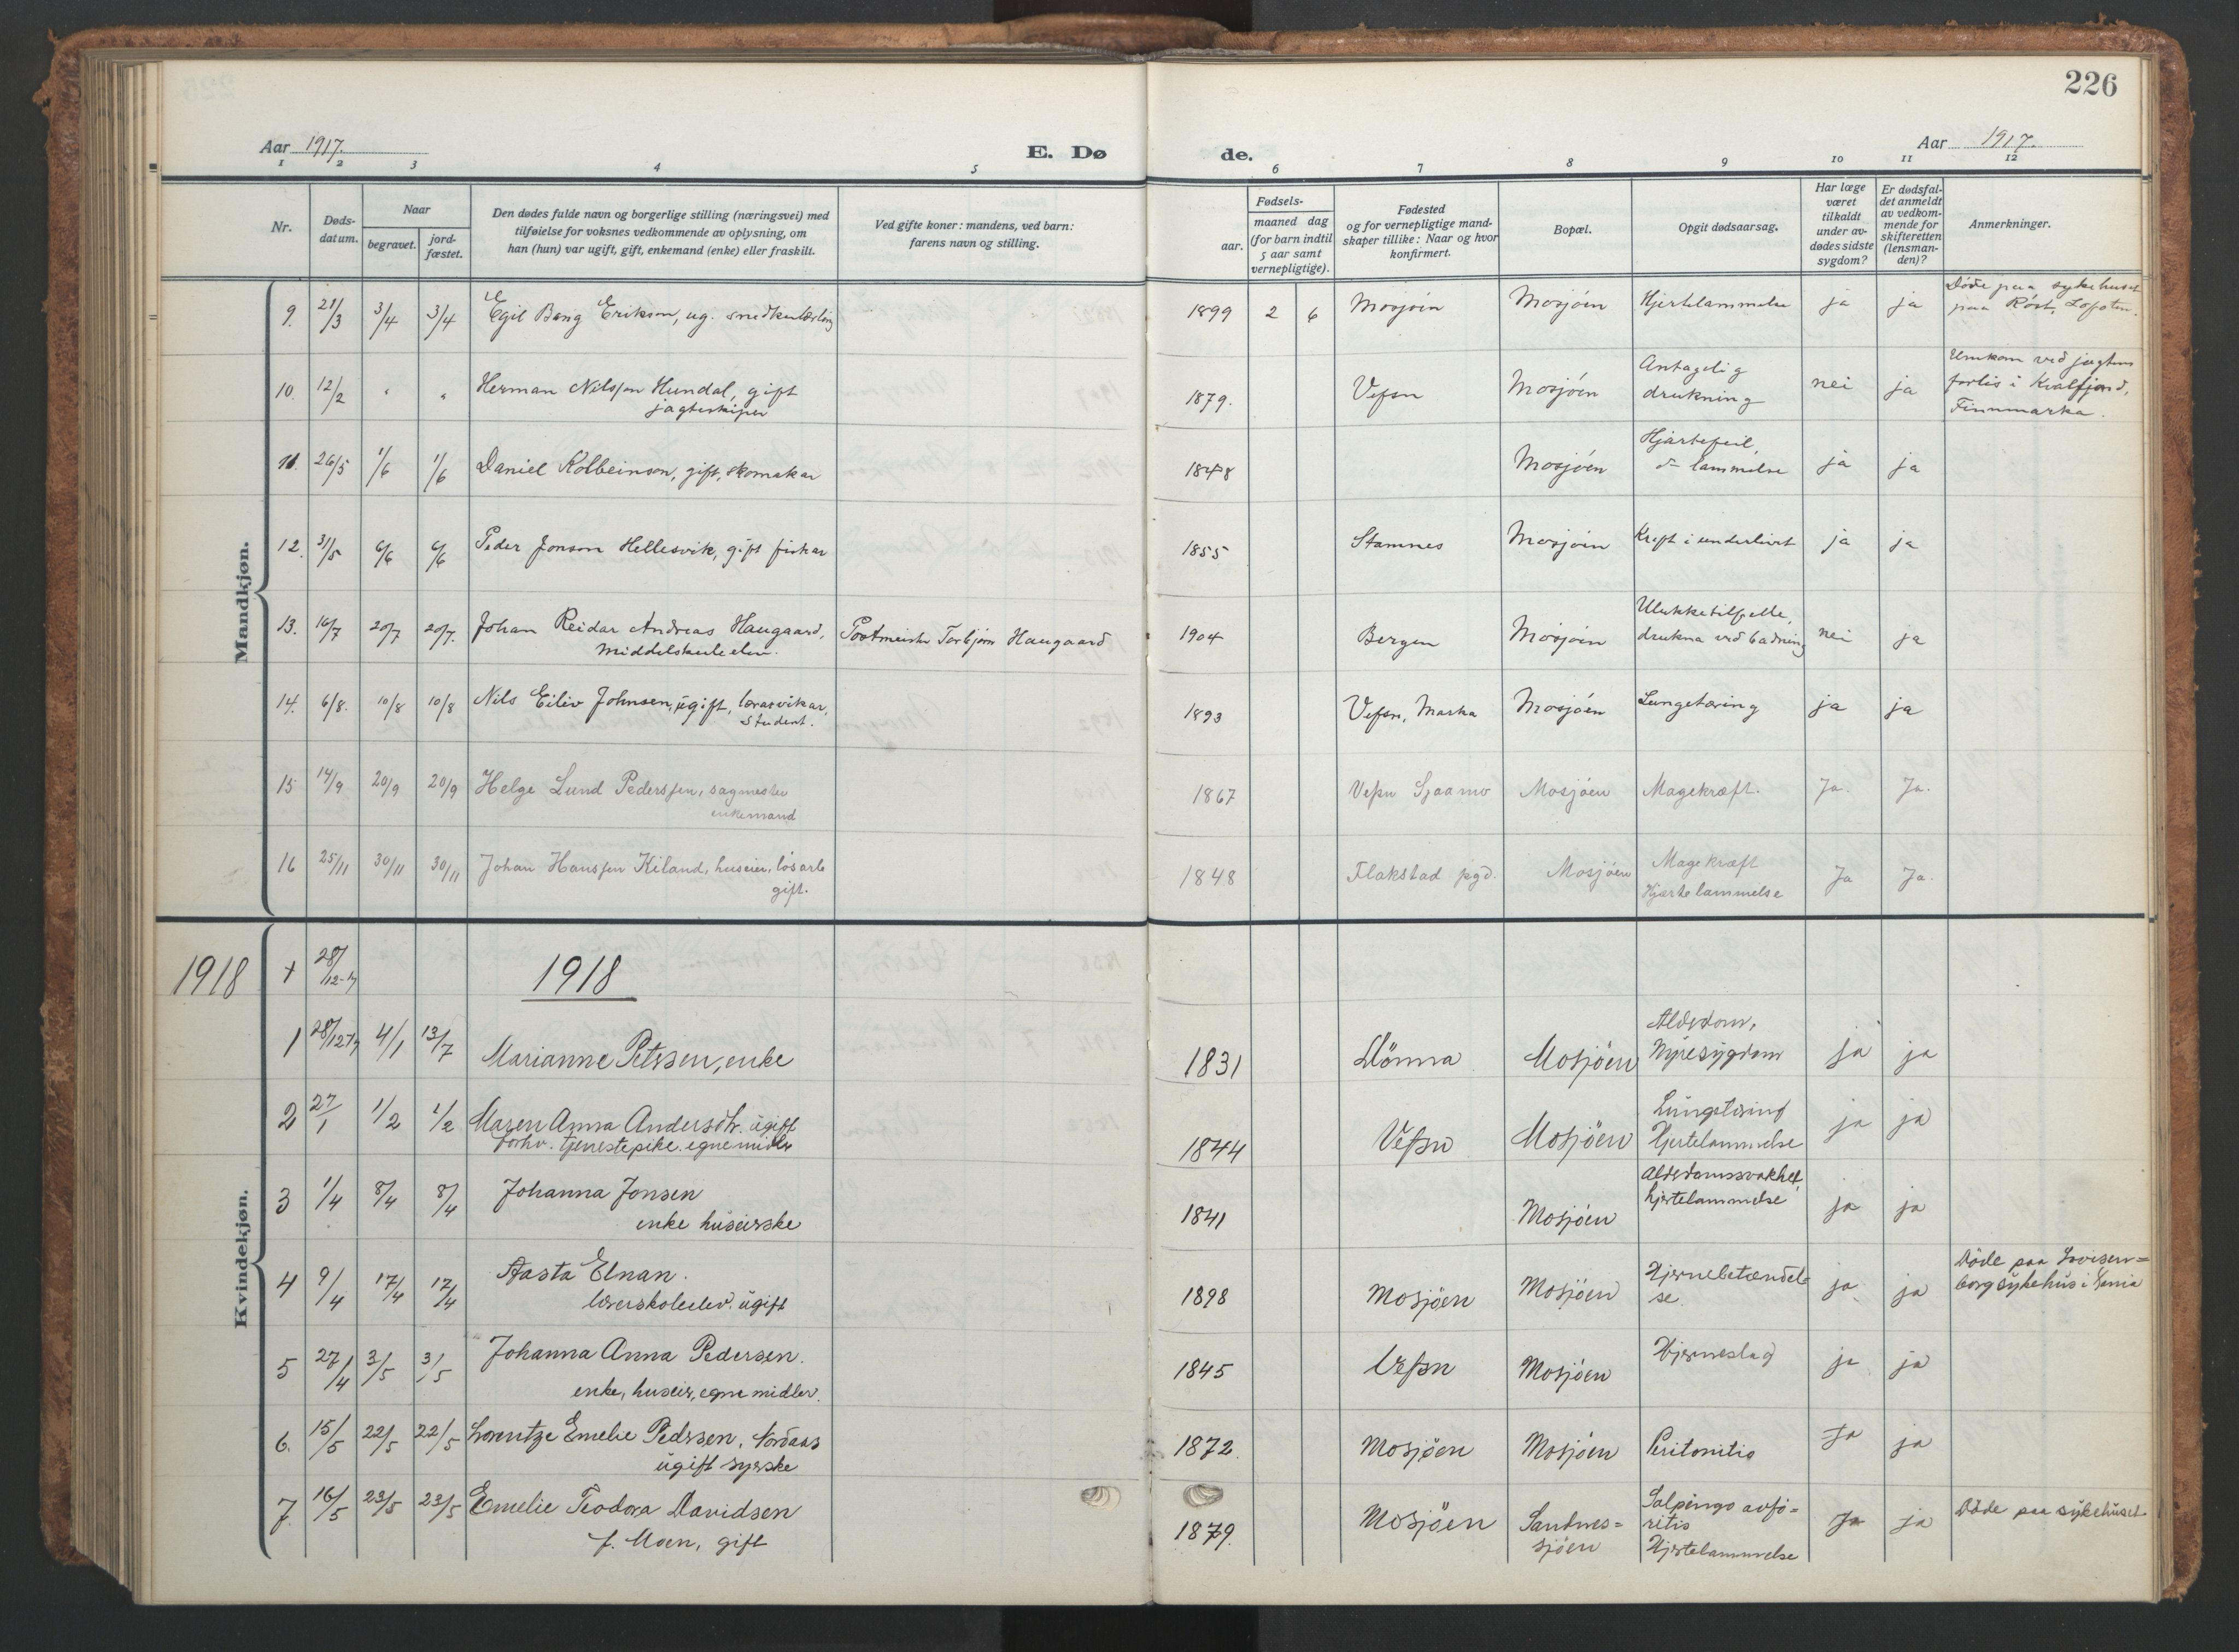 226
Aar 1917. E. Dø de. Aar 1917.
1 2 3 4 5 6 7 8 9 10 11 12
Nr.
Døds-
datum.
Naar
begravet.
jord-
fæstet.
Den dødes fulde navn og borgerlige stilling (næringsvei) med
tilføielse for voksnes vedkommende av oplysning, om
han (hun) var ugift, gift, enkemand (enke) eller fraskilt.
Ved gifte koner: mandens, ved barn:
farens navn og stilling.
Fødsels-
aar.
maaned dag
(for barn indtil
5 aar samt
vernepligtige).
Fødested
og for vernepligtige mand-
skaper tillike: Naar og hvor
konfirmert.
Bopæl.
Opgit dødsaarsag.
Har læge
været
tilkaldt
under av-
dødes sidste
sygdom?
Er dødsfal-
det anmeldt
av vedkom-
mende for
skifteretten
(lensman-
den)?
Anmerkninger.
Mandkjøn.
9. 21/3 3/4 3/4 Egil Bang Erikson, ug. snedkerlærling 1899 2 6 Mosjøen Mosjøen Hjertelammelse ja ja Døde paa sykehuset
paa Røst, Lofoten.
10. 12/2 " " Herman Nilssen Hundal, gift
jagteskiper 1879. Vefsn Mosjøen Antagelig
drukning nei ja Umkom ved jagtens
forlis i Kvalfjord,
Finnmarka.
11. 26/5 1/6 1/6 Daniel Kolbeinson, gift, skomakar 1848 Mosjøen Hjartefeil,
d- lammelse ja ja
12. 31/5 6/6 6/6 Peder Jonson Hellesvik, gift fiskar 1855 Stamnes Mosjøen Kreft i underlivet ja ja
13. 16/7 20/7 20/7. Johan Reidar Andreas Haugaard,
Middelskuleelev. Postmeister Torbjørn Haugaard 1904 Bergen Mosjøen Ulukketilfelle,
drukna ved badning nei ja
14. 6/8. 10/8 10/8 Nils Eiliv Johnsen, ugift, læravikar,
student. 1893 Vefsn, Marka Mosjøen Lungetæring ja ja
15 14/9 20/9 20/9 Helge Lund Pederssen, sagmester
enkemand 1867 Vefsn Sjaamo Mosjøen Magekræft. Ja. Ja.
16 25/11 30/11 30/11 Johan Hanssen Kiland, huseier, løsarb
gift. 1848 Flakstad pgd. Mosjøen Magekræft
Hjertelammelse Ja Ja.
Kvindekjøn.
1918 + 28/12-17 1918
1 28/12 17 4/1 13/7 Marianne Petersen, enke 1831 Dönna Mosjöen Alderdom,
Nyresygdom ja ja
2 27/1 1/2 1/2 Maren Anna Andersdtr. ugift
forhv. tjenestepike. egne midler 1844 Vefsn Mosjöen Lungetæring
Hjertelammelse ja ja
3 1/4 8/4 8/4 Johanna Jonsen
enke huseierske 1841 Mosjöen Alderdomssvakhet,
hjertelammelse ja ja
4 9/4 17/4 17/4 Aasta Elnan.
lærerskoleelev. ugift 1898 Mosjöen Mosjöen Hjernebetændel-
se. ja ja Døde paa Lovisen=
borg sykehus i
5 27/4 3/5 3/5 Johanna Anna Pedersen.
enke, huseier, egne midler. 1845 Vefsn Mosjöen Hjerneslag ja ja
6. 15/5 22/5 22/5 Lorentze Emelie Pedersen, Nordaas
ugift syerske 1872. Mosjöen Mosjöen Peritonitis Ja ja
7. 16/5 23/5 23/5 Emelie Teodora Davidsen
f. Moen, gift 1879. Mosjöen Sandnes=
sjöen Salpingo
ritis
Hjertelammelse Ja ja Døde paa sykehuset